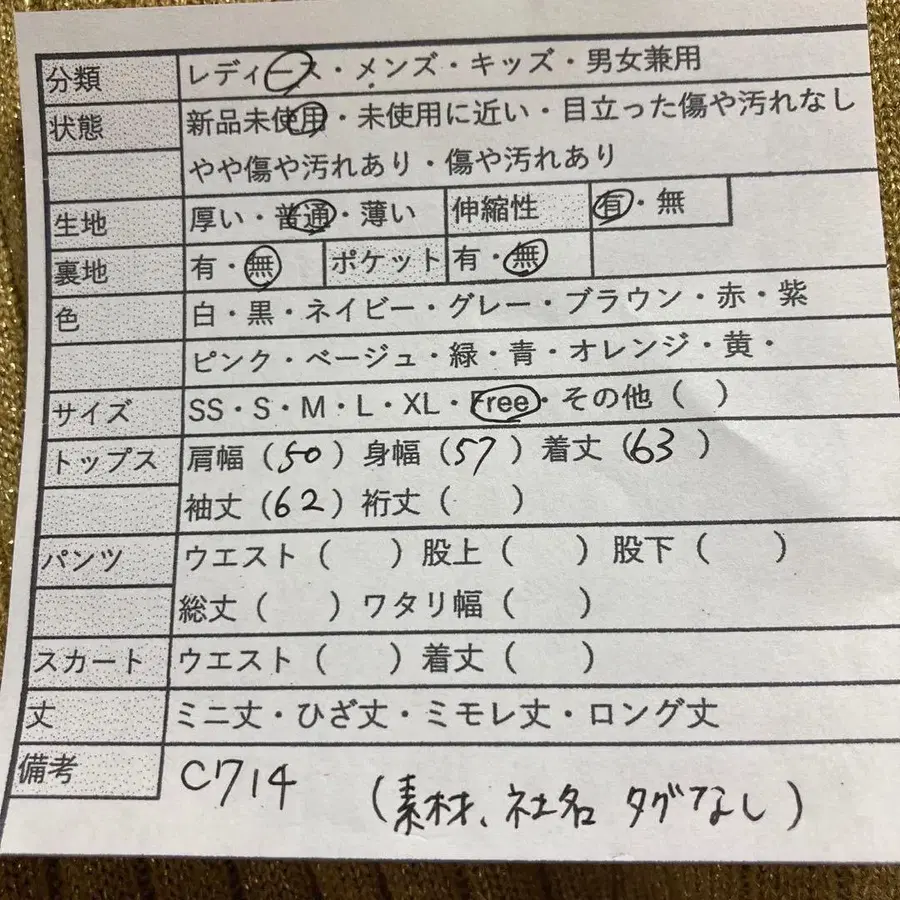 分類 レディース・メンズ・キッズ・男女兼用
状態 新品未使用・未使用に近い・目立った傷や汚れなし
やや傷や汚れあり・傷や汚れあり
生地 厚い・普通・薄い 伸縮性 有・無
裏地 有・無 ポケット 有・無
色 白・黒・ネイビー・グレー・ブラウン・赤・紫
ピンク・ベージュ・緑・青・オレンジ・黄・
サイズ SS・S・M・L・XL・Free・その他( )
トップス 肩幅(50)身幅(57)着丈(63)
袖丈(62)裄丈( )
パンツ ウエスト( )股上( )股下( )
総丈( )ワタリ幅( )
スカート ウエスト( )着丈( )
丈 ミニ丈・ひざ丈・ミモレ丈・ロング丈
備考 C714 (素材、社名 タグなし)